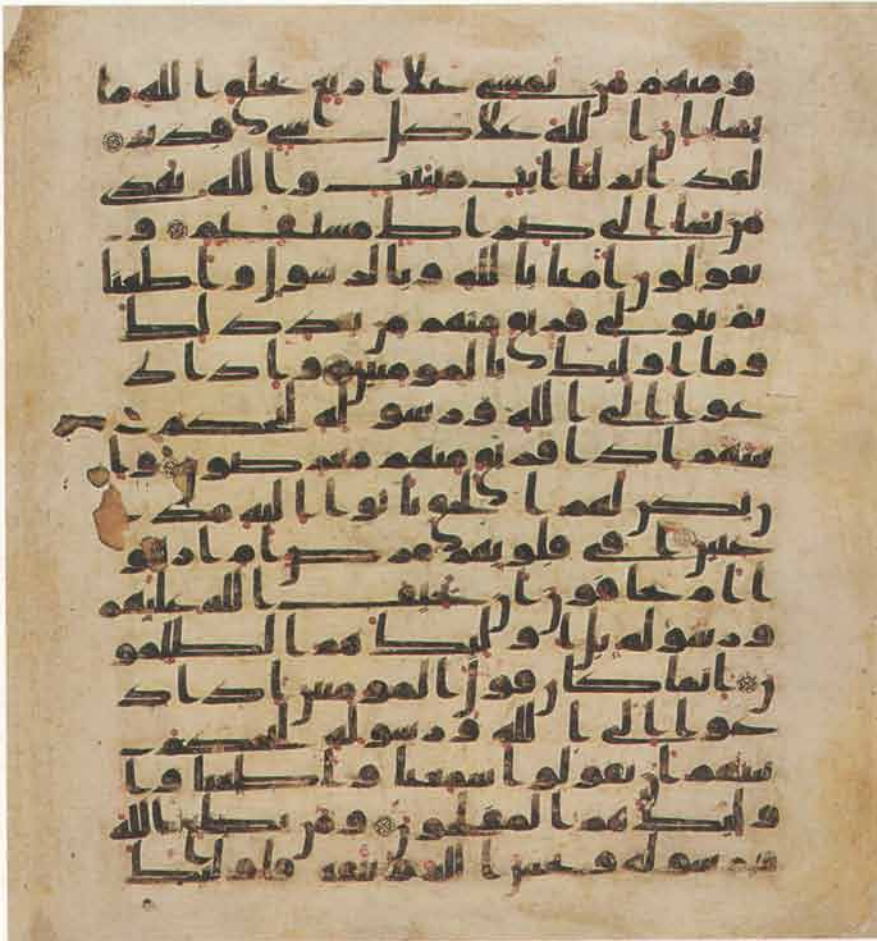 ومنهم من يمشى على اربع يخلق الله ما
يشا ان الله على كل شى قدير
لقد انزلنا ايت مبينت والله يهدى
من يشا الى صراط مستقيم و
يقولون امنا بالله وبالرسول واطعنا
ثم يتولى فريق منهم من بعد ذلك
وما اوليك بالمومنين واذا د
عوا الى الله ورسوله ليحكم
بينهم اذا فريق منهم معرضون وا
ن يكن لهم الحق ياتوا اليه مذ
عنين ا فى قلوبهم مرض ام ارتابو
ا ام يخافون ان يحيف الله عليهم
ورسوله بل اوليك هم الظلمو
ن انما كان قول المومنين اذا د
عوا الى الله ورسوله ليحكم
بينهم ان يقولوا سمعنا واطعنا وا
وليك هم المفلحون ومن يطع الله
ورسوله ويخش الله ويتقه فاوليك